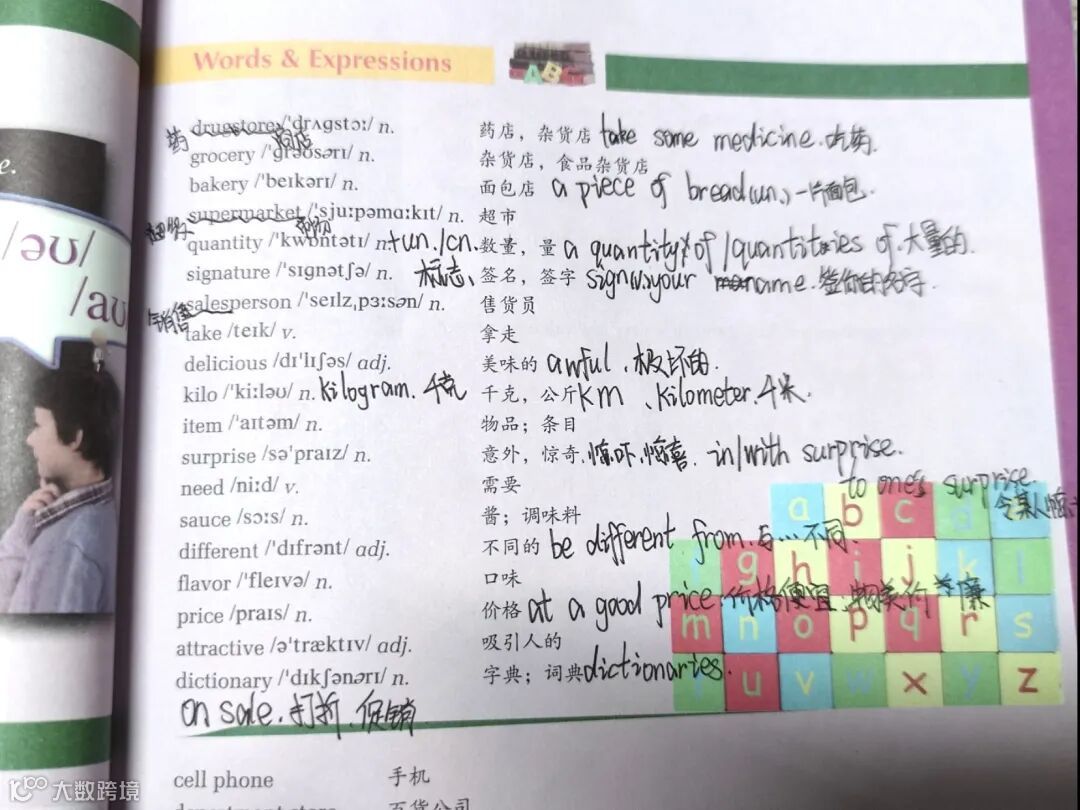 Words & Expressions
ABC
e.
/əʊ/
/aʊ
药 drugstore /ˈdrʌgstɔː/ n. 商店 药店，杂货店 take some medicine. 吃药.
grocery /ˈgrəʊsərɪ/ n. 杂货店，食品杂货店
bakery /ˈbeɪkərɪ/ n. 面包店 a piece of bread(un.) 一片面包.
超级 supermarket /ˈsjuːpəmɑːkɪt/ n. 超市
市场
quantity /ˈkwɒntətɪ/ n. +un./cn. 数量，量 a quantity of /quantities of. 大量的.
signature /ˈsɪgnətʃə/ n. 标志、签名，签字 sign(v.) your name. 签你的名字.
销售 salesperson /ˈseɪlzˌpɜːsən/ n. 售货员
take /teɪk/ v. 拿走
delicious /dɪˈlɪʃəs/ adj. 美味的 awful. 极坏的.
kilo /ˈkiːləʊ/ n. kilogram. 千克 千克，公斤 km 、kilometer. 千米.
item /ˈaɪtəm/ n. 物品；条目
surprise /səˈpraɪz/ n. 意外，惊奇. 惊吓. 惊喜. in/with surprise.
to one's surprise.
令某人惊
need /niːd/ v. 需要
sauce /sɔːs/ n. 酱；调味料
different /ˈdɪfrənt/ adj. 不同的 be different from. 与…不同.
flavor /ˈfleɪvə/ n. 口味
price /praɪs/ n. 价格 at a good price. 价格便宜. 物美价廉
attractive /əˈtræktɪv/ adj. 吸引人的
dictionary /ˈdɪkʃənərɪ/ n. 字典；词典 dictionaries.
on sale. 打折. 促销.
a b c d
g h i j k l
m n o p q r s
u v w x y z
cell phone 手机
department store 百货公司
大数跨境